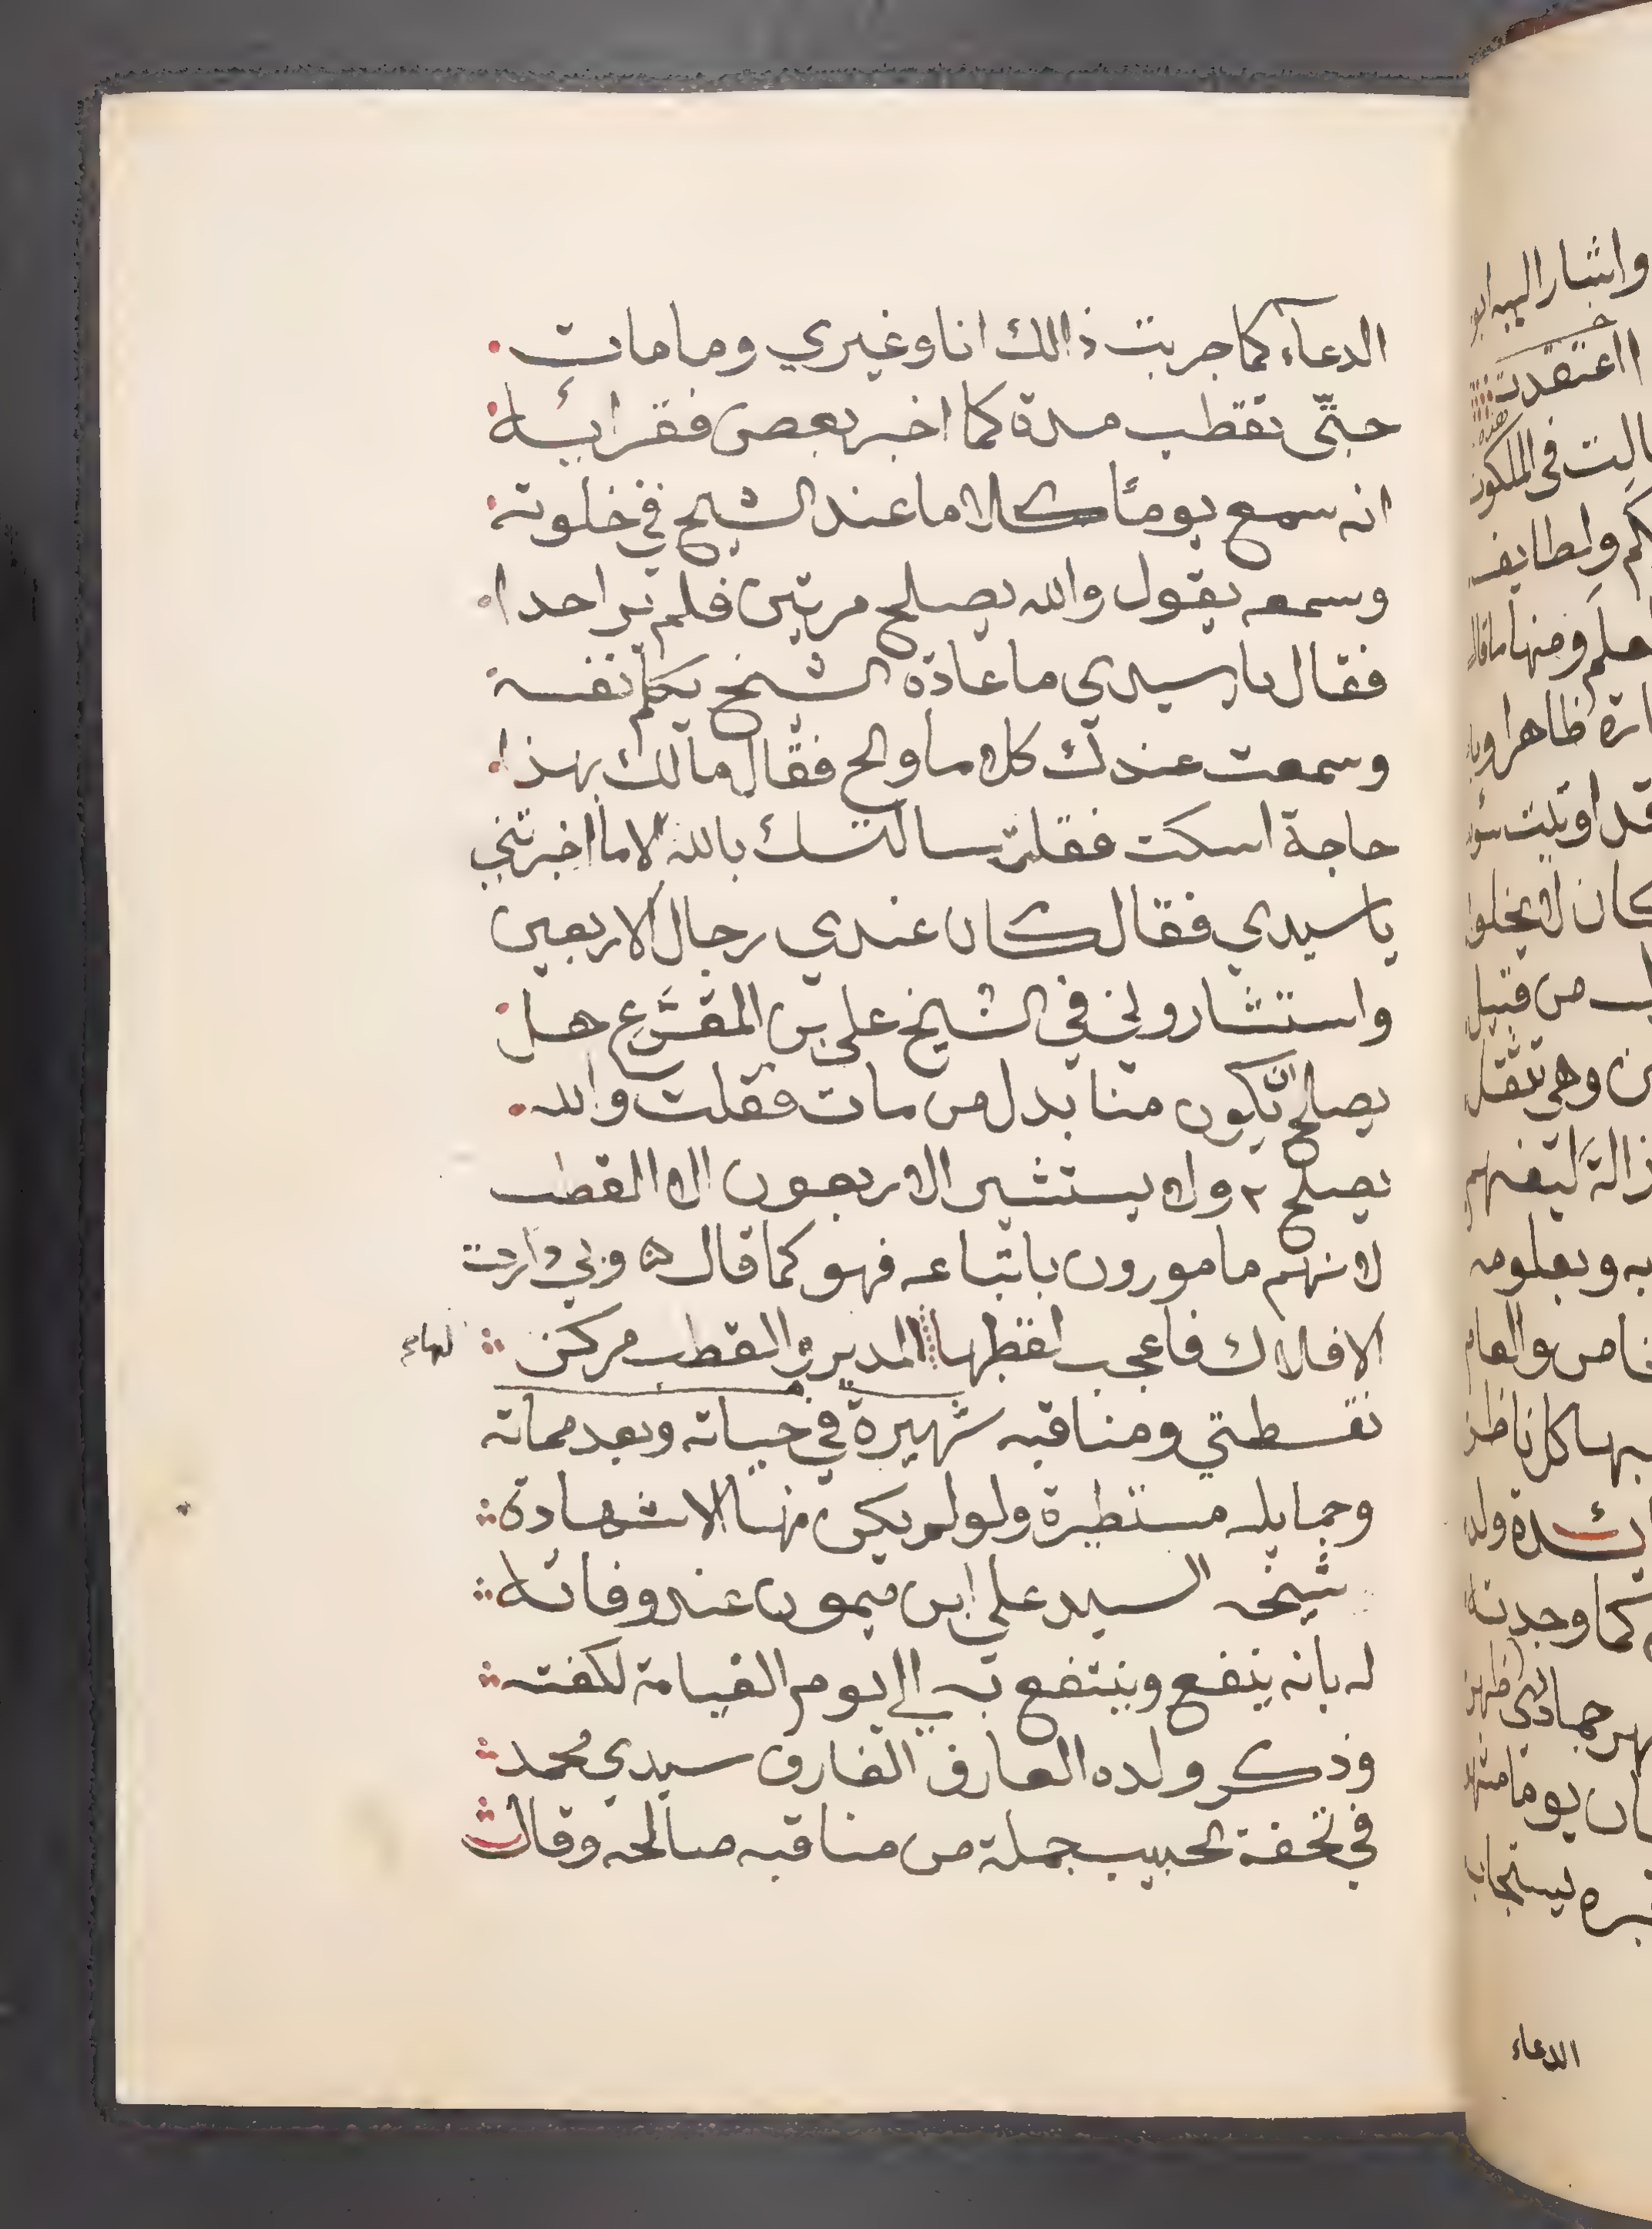 الدعاء كما جربت ذالك انا وغيري وما مات
حتّى تقطب مدة كما اخبر بعض فقرائه
انه سمع يومًا كلاما عند الشيخ في خلوته
وسمعه يقول والله يصلح مرتين فلم ير احدا
فقال يا سيدي ما عادة الشيخ يكلم نفسه
وسمعت عندك كلاما والح فقال مالك بهذا
حاجة اسكت فقلت سالتك بالله الا ما اخبرتني
يا سيدي فقال كان عندي رجال الاربعين
واستشاروني في الشيخ علي بن المقرع هل
يصلح ان يكون منا بدل من مات فقلت والله
يصلح ٢ ولا يستشير الاربعون الا القطب
لانهم مامورون باتباعه فهو كما قال ه وبي دارت
الافلاك فاعجب لقطبها المدير والقطب مركز
لها
نقسطتي ومناقبه شهيرة في حياته وبعد مماته
وحمايله مستطيرة ولو لم يكن منها الا شهادة
شيخه السيد علي ابن ميمون عند وفاته
له بانه ينفع وينتفع به الي يوم القيامة لكفته
وذكر ولده العارف الفارق سيدي محمد
في تحفة الحبيب جملة من مناقبه صالحه وقال
واشار اليه
اعتقدت
هذه
في الملكوت
ولطايف
ومنها ما قال
ظاهرا
من قبيل
كل ناظر
كما وجدته
يوما
الدعاء